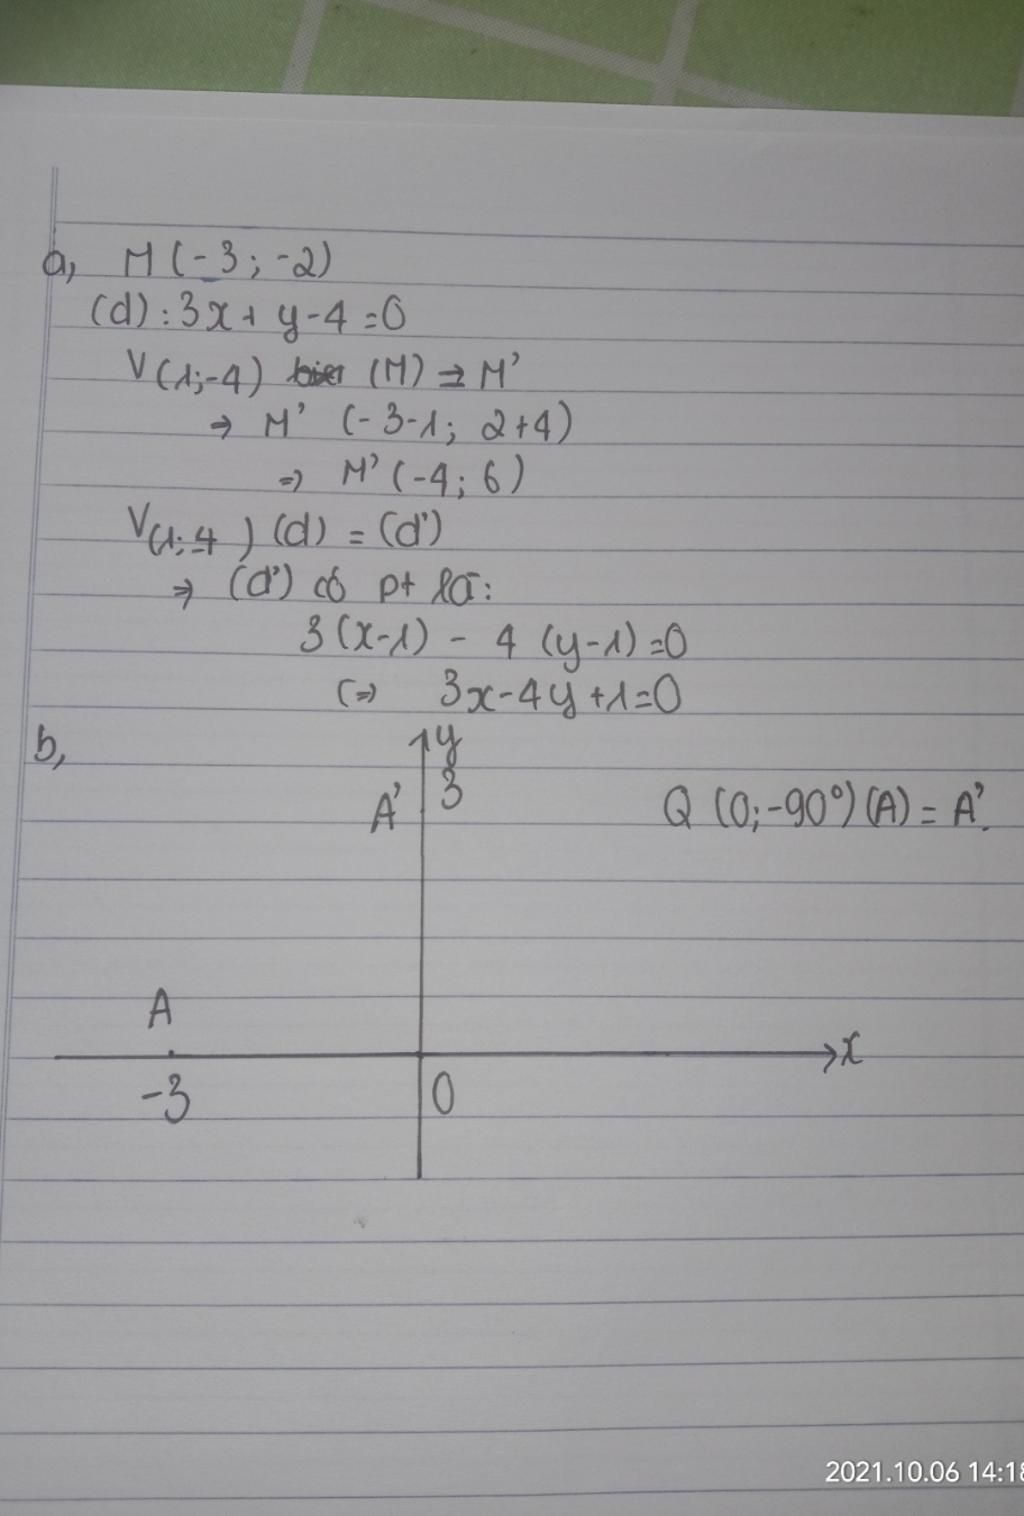 a, M (-3; -2)
(d) : 3x + y - 4 = 0
V(1; -4) (M) => M'
=> M' (-3-1; 2+4)
=> M' (-4; 6)
V(1; -4) (d) = (d')
=> (d') có pt là:
3(x-1) - 4 (y-1) = 0
(=> 3x - 4y + 1 = 0
b,
y
A' 3
Q (0; -90°) (A) = A'.
A
x
-3 0
2021.10.06 14:18